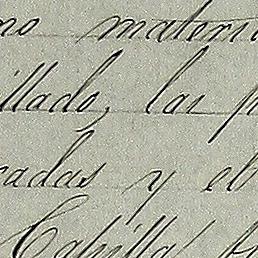 no materi
illado, las p
radas y el
Capilla